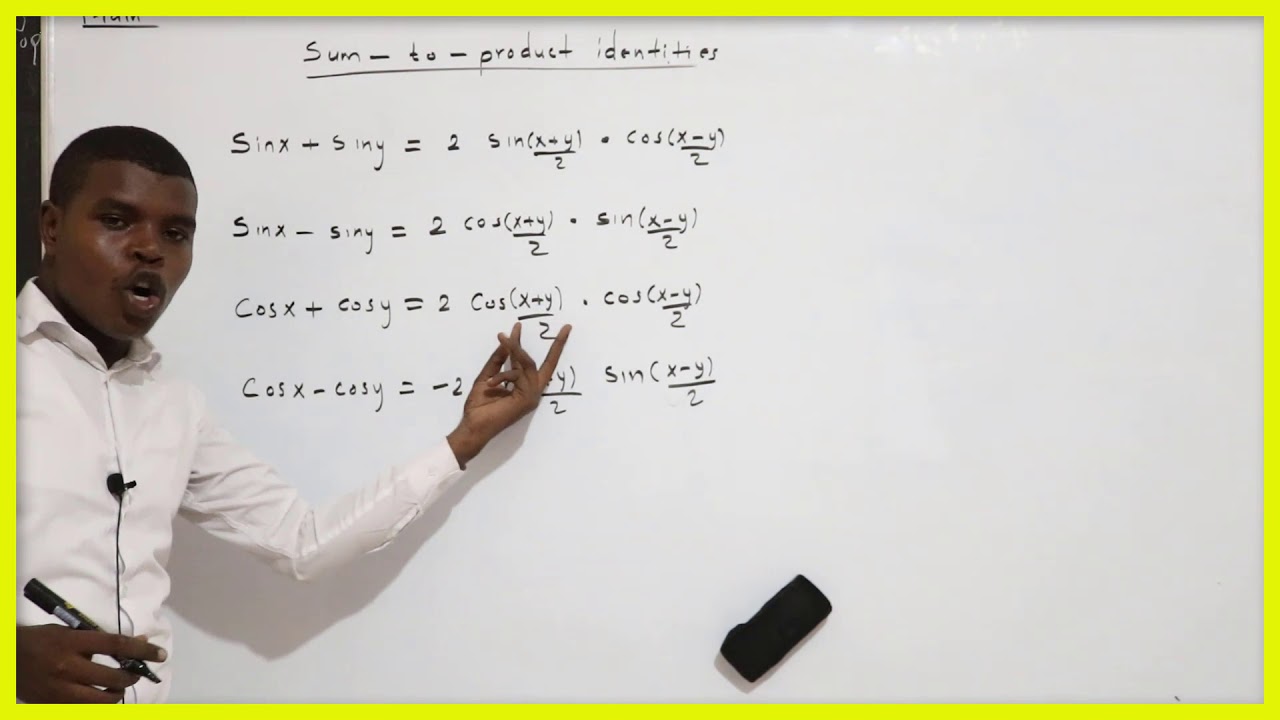 Sum - to - product identities
Sinx + siny = 2 sin(x+y)/2 • cos(x-y)/2
Sinx - siny = 2 cos(x+y)/2 • sin(x-y)/2
Cosx + cosy = 2 Cos(x+y)/2 • cos(x-y)/2
Cosx - cosy = -2 +y)/2 sin(x-y)/2